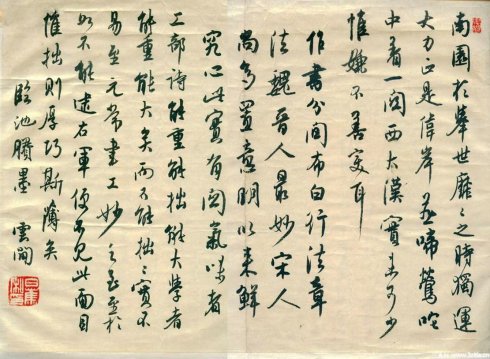 南園於舉世靡靡之時獨運
大力正是偉岸若啼鶯
中着一関西大漢實未可少
惟嫌不善变耳
作書分间布白行法章
法魏晋人最妙宋人
尚多置意明以来鮮
究心此實有関氣味者
工部诗能重能拙能大學者
能重能大矣而不能拙拙實不
易至元常書工妙之至至於
如不能右軍便不見此面目
惟拙则厚巧斯薄矣
臨池賸墨 雲